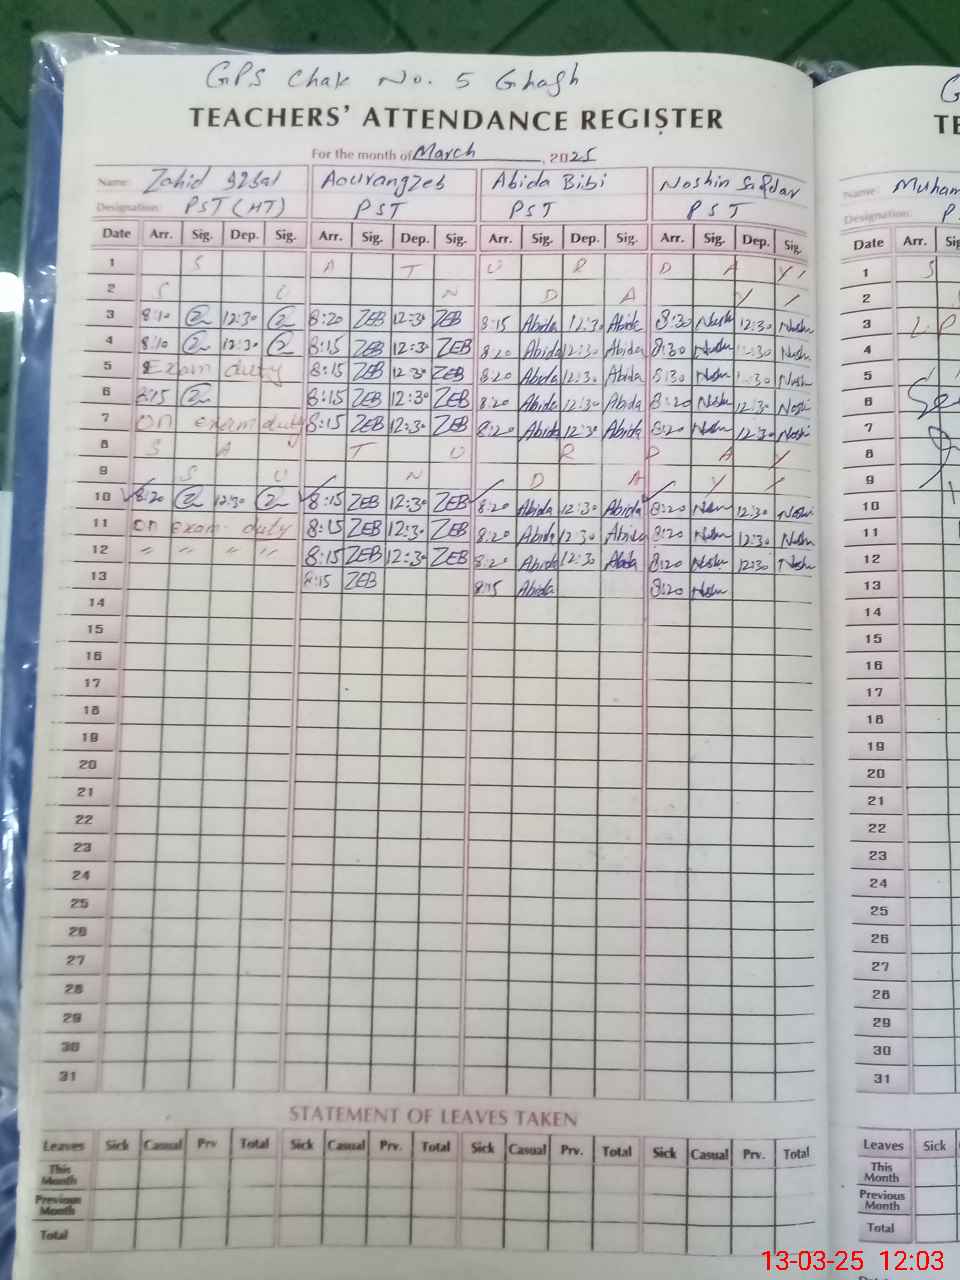 GPS Chak No. 5 Ghagh
TEACHERS' ATTENDANCE REGISTER
For the month of March, 2025
Name: Zahid Iqbal Aourangzeb Abida Bibi Noshin Safdar
Designation: PST (HT) PST PST PST
Date Arr. Sig. Dep. Sig. Arr. Sig. Dep. Sig. Arr. Sig. Dep. Sig. Arr. Sig. Dep. Sig.
1 S A T U R D A Y
2 S U N D A Y
3 8:10 12:30 8:20 ZEB 12:30 ZEB 8:15 Abida 12:30 Abida 8:30 Nosh 12:30 Nosh
4 8:10 12:30 8:15 ZEB 12:30 ZEB 8:20 Abida 12:30 Abida 8:30 Nosh 12:30 Nosh
5 Exam duty 8:15 ZEB 12:30 ZEB 8:20 Abida 12:30 Abida 8:30 Nosh 12:30 Nosh
6 8:15 8:15 ZEB 12:30 ZEB 8:20 Abida 12:30 Abida 8:20 Nosh 12:30 Nosh
7 on exam duty 8:15 ZEB 12:30 ZEB 8:20 Abida 12:30 Abida 8:20 Nosh 12:30 Nosh
8 S A T U R D A Y
9 S U N D A Y
10 8:20 12:30 8:15 ZEB 12:30 ZEB 8:20 Abida 12:30 Abida 8:20 Nosh 12:30 Nosh
11 on exam duty 8:15 ZEB 12:30 ZEB 8:20 Abida 12:30 Abida 8:20 Nosh 12:30 Nosh
12 " " " " 8:15 ZEB 12:30 ZEB 8:20 Abida 12:30 Abida 8:20 Nosh 12:30 Nosh
13 8:15 ZEB 8:15 Abida 8:20 Nosh
14
15
16
17
18
19
20
21
22
23
24
25
26
27
28
29
30
31
STATEMENT OF LEAVES TAKEN
Leaves Sick Casual Prv Total Sick Casual Prv. Total Sick Casual Prv. Total Sick Casual Prv. Total
This Month
Previous Month
Total
G
TE
Name: Muham
Designation: P
Date Arr. Sig
1 S
2
3 L P
4
5
6
7
8
9
10
11
12
13
14
15
16
17
18
19
20
21
22
23
24
25
26
27
28
29
30
31
Leaves Sick
This Month
Previous Month
Total
13-03-25 12:03